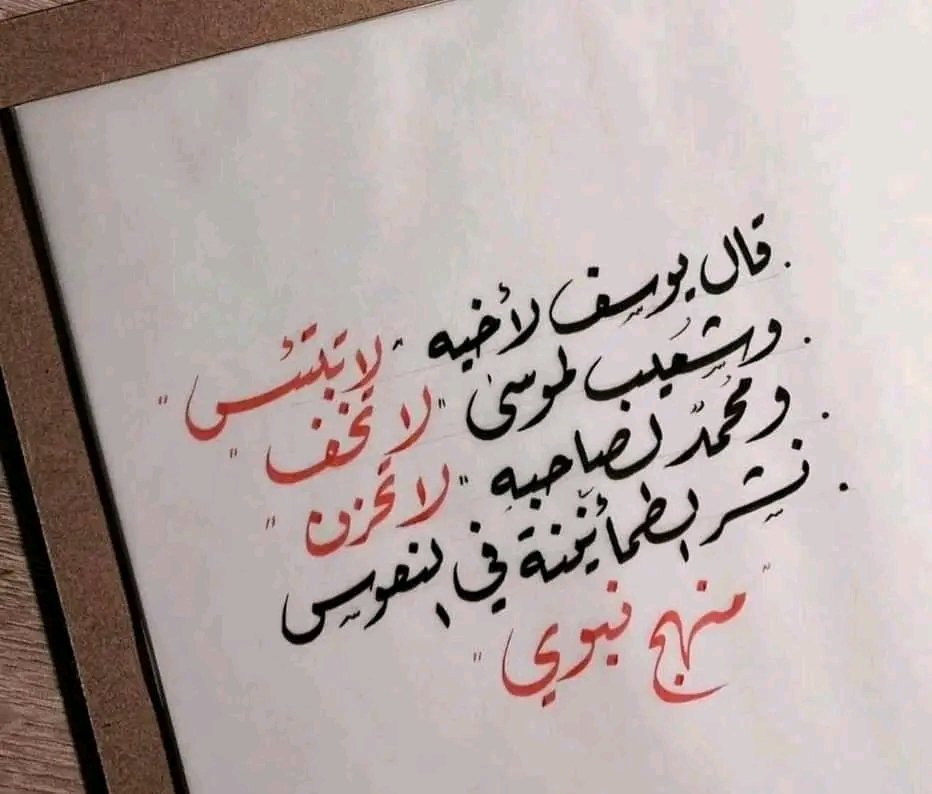 . قال يوسف لأخيه "لا تبتئس"
. وشعيب لموسى "لا تخف"
. ومحمد لصاحبه "لا تحزن"
. نشر الطمأنينة في النفوس
"منهج نبوي"